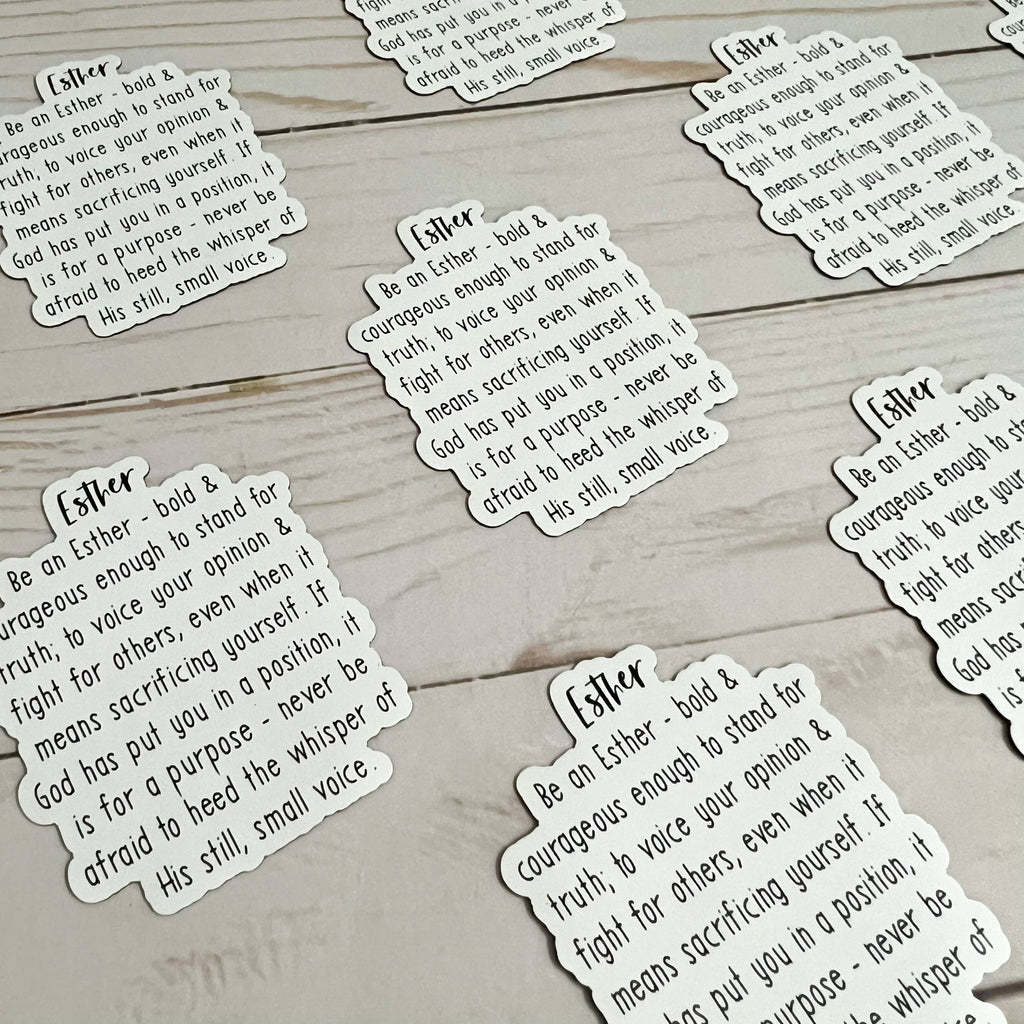 God has put you in a
is for a purpose - never
afraid to heed the whisper of
His still, small voice.
Esther
Be an Esther - bold &
courageous enough to stand for
truth; to voice your opinion &
fight for others, even when it
means sacrificing yourself. If
God has put you in a position, it
is for a purpose - never be
afraid to heed the whisper of
His still, small voice.
Esther
Be an Esther - bold &
courageous enough to stand for
truth; to voice your opinion &
fight for others, even when it
means sacrificing yourself. If
God has put you in a position, it
is for a purpose - never be
afraid to heed the whisper of
His still, small voice.
Esther
Be an Esther - bold &
courageous enough to stand for
truth; to voice your opinion &
fight for others, even when it
means sacrificing yourself. If
God has put you in a position, it
is for a purpose - never be
afraid to heed the whisper of
His still, small voice.
Esther
Be an Esther - bold &
courageous enough to stand
truth; to voice your
fight for others
means
God has
is f
Esther
Be an Esther - bold &
urageous enough to stand for
truth; to voice your opinion &
fight for others, even when it
means sacrificing yourself. If
God has put you in a position, it
is for a purpose - never be
afraid to heed the whisper of
His still, small voice.
Esther
Be an Esther - bold &
courageous enough to stand for
truth; to voice your opinion &
fight for others, even when it
means sacrificing yourself. If
has put you in a position, it
purpose - never be
heed the whisper of